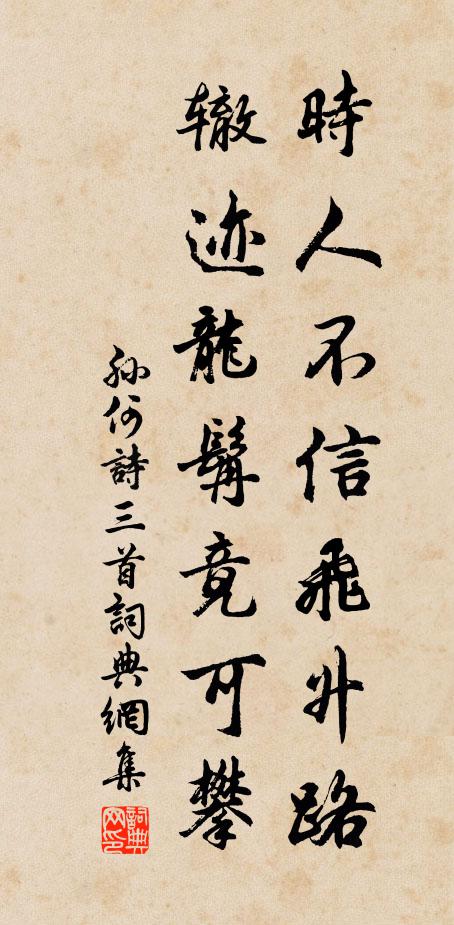 時人不信飛升路
辙迹龍髯竟可攀
孙何詩三首詞典網集
詞典网印